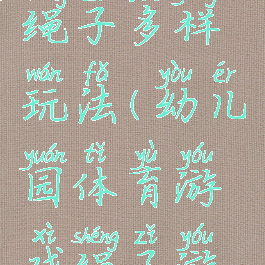 绳子多样
wán fǎ yòu ér
玩法(幼儿
yuán tǐ yù yóu
园体育游
xì shéng zǐ yóu